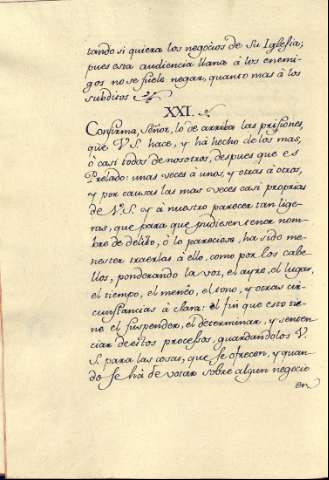 tando si quiera los negocios de Su Iglesia;
pues esta audiencia llana à los enemi-
gos no se suele negar, quanto mas à los
subditos
XXI.
Confirma, Señor, lo de arriba las prisiones,
que V. S. hace, y há hecho de los mas,
ò casi todos de nosotros, despues que es
Prelado: unas veces a unos, y otras à otros,
y por causas las mas veces casi proprias
de V. S. y à nuestro parecer tan lige-
ras, que para que pudiesen tener nom-
bre de delito, ò lo pareciesse, ha sido me-
nester traerlas à ello, como por los cabe-
llos, ponderando la voz, el ayre, el lugar,
el tiempo, el meneo, el tono, y otras cir-
cunstancias à clara: el fin que esto tie-
ne el suspender, el determinar, y senten-
ciar destos processos, guardandolos V.
S. para las cosas, que se ofrecen, y quan-
do se há de votar sobre algun negocio
en